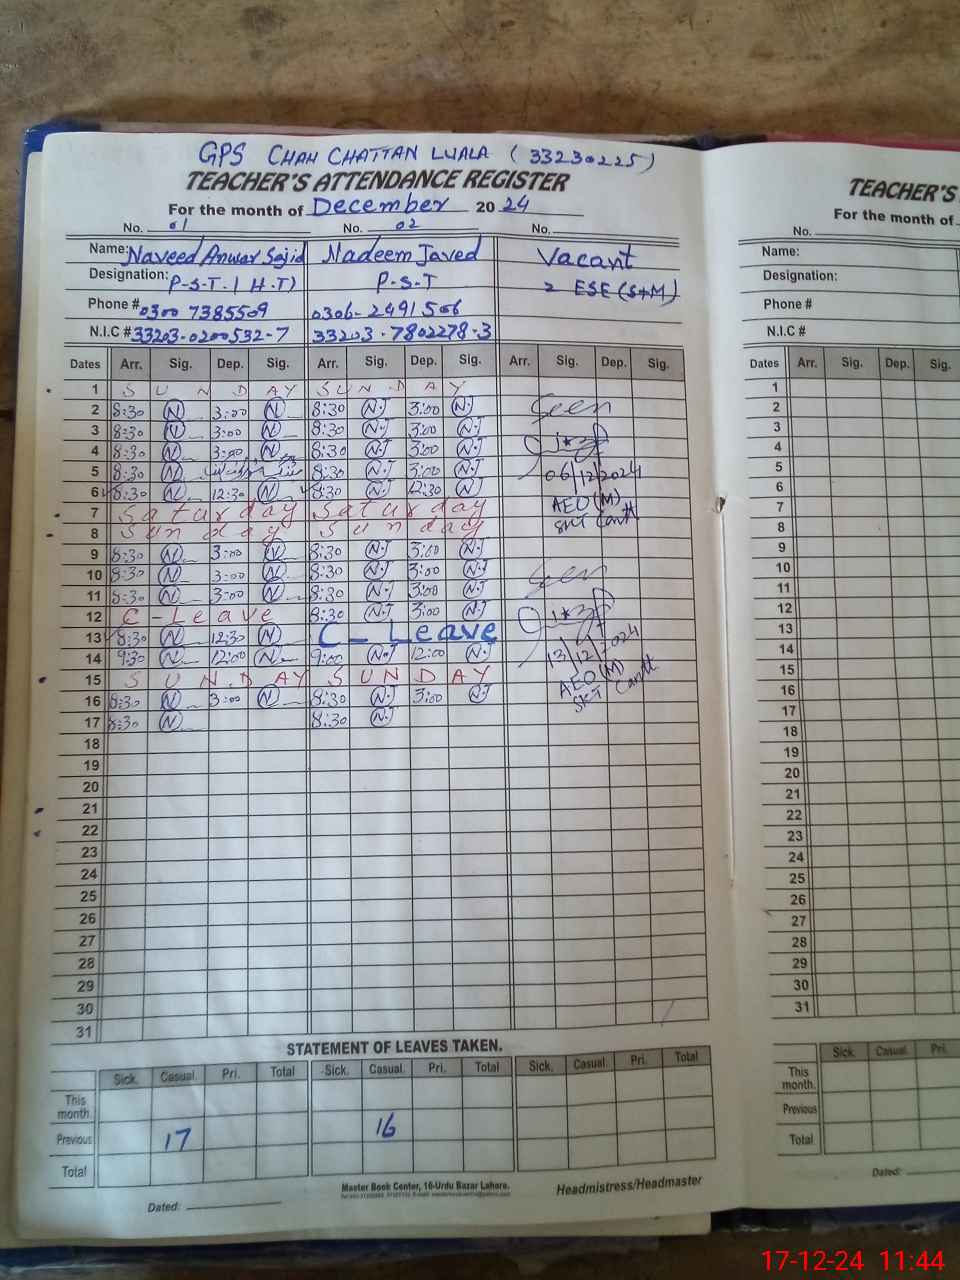 GPS CHAH CHATTAN WALA (33230225)
TEACHER'S ATTENDANCE REGISTER
For the month of December 2024
No. 01 No. 02 No.
Name: Naveed Anwar Sajid Nadeem Javed Vacant
Designation: P.S.T. (H.T) P.S.T 2 ESE (S+M)
Phone # 0300 7385509 0306-2491506
N.I.C # 33203-0200532-7 33203-7802278-3
Dates Arr. Sig. Dep. Sig. Arr. Sig. Dep. Sig. Arr. Sig. Dep. Sig.
1 SUNDAY SUNDAY
2 8:30 N 3:00 N 8:30 N.J 3:00 N.J Seen
3 8:30 N 3:00 N 8:30 N.J 3:00 N.J
4 8:30 N 3:00 N 8:30 N.J 3:00 N.J
5 8:30 N 8:30 N.J 3:00 N.J 06/12/2024
6 8:30 N 12:30 N 8:30 N.J 12:30 N.J AEO (M)
7 Saturday Saturday SKT Cantt
8 Sunday Sunday
9 8:30 N 3:00 N 8:30 N.J 3:00 N.J
10 8:30 N 3:00 N 8:30 N.J 3:00 N.J Seen
11 8:30 N 3:00 N 8:30 N.J 3:00 N.J
12 C-Leave 8:30 N.J 3:00 N.J
13 8:30 N 12:30 N C-Leave
14 9:30 N 12:00 N 9:00 N.J 12:00 N.J 13/12/2024
15 SUNDAY SUNDAY AEO (M)
16 8:30 N 3:00 N 8:30 N.J 3:00 N.J SKT Cantt
17 8:30 N 8:30 N.J
18
19
20
21
22
23
24
25
26
27
28
29
30
31
STATEMENT OF LEAVES TAKEN.
Sick. Casual. Pri. Total Sick. Casual. Pri. Total Sick. Casual. Pri. Total
This month.
Previous 17 16
Total
Master Book Center, 16-Urdu Bazar Lahore.
Dated: Headmistress/Headmaster
TEACHER'S
For the month of
No.
Name:
Designation:
Phone #
N.I.C #
Dates Arr. Sig. Dep. Sig.
1
2
3
4
5
6
7
8
9
10
11
12
13
14
15
16
17
18
19
20
21
22
23
24
25
26
27
28
29
30
31
Sick. Casual. Pri.
This month.
Previous
Total
Dated:
17-12-24 11:44